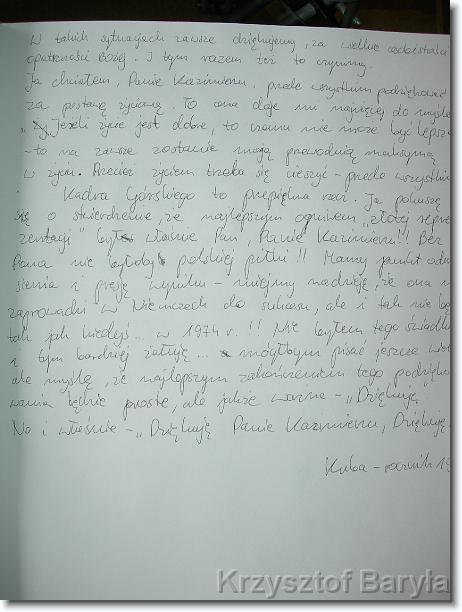 W takich sytuacjach zawsze dziękujemy, za wielkie
opatrzności Bożej. I tym razem też to czynimy.
Ja chciałem, Panie Kazimierzu, przede wszystkim podziękować
za postawę życiową. To ona daje mi najwięcej do
"Jeżeli życie jest dobre, to czemu nie może być lepsze
- to na zawsze zostanie moją przewodnią maksymą
w życiu. Przecież życiem trzeba się cieszyć - przede wszystkim
Kadra Górskiego to przepiękna rzecz. Ja pokuszę
się o stwierdzenie, że najlepszym ogniwem "złotej repre
zentacji" był właśnie Pan, Panie Kazimierzu!! Bez
Pana nie byłoby polskiej piłki!! Mamy punkt odnie
sienia i presję wyniku - miejmy nadzieję, że ona n
zaprowadzi w Niemczech do sukcesu, ale i tak nie bę
tak jak kiedyś... w 1974 r.!!! Nie byłem tego świadk
i tym bardziej żałuję... mógłbym pisać jeszcze
ale myślę, że najlepszym zakończeniem tego podzięko
wania będzie proste, ale jakże ważne - "Dziękuję
No i właśnie - "Dziękuję Panie Kazimierzu, Dziękuję
Kuba - rocznik 19
Krzysztof Baryła